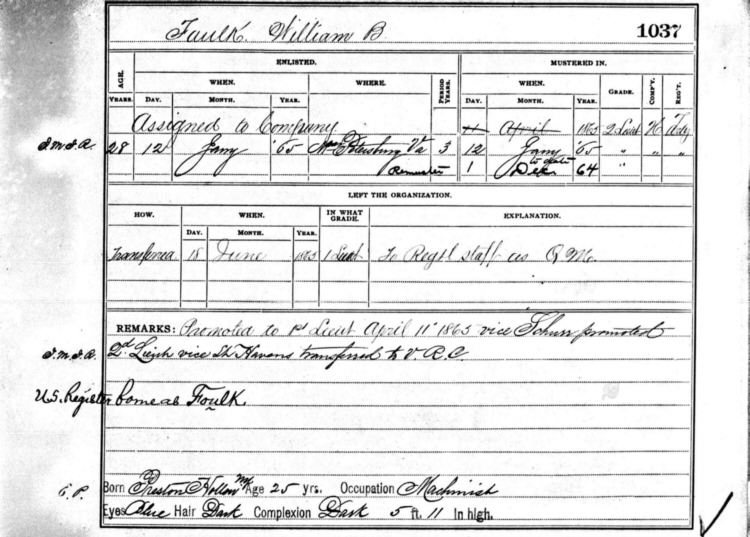 Faulk William B 1037
ENLISTED. MUSTERED IN.
AGE. WHEN. WHERE. PERIOD WHEN. GRADE. COMP'Y. REG'T.
YEARS. DAY. MONTH. YEAR. YEARS. DAY. MONTH. YEAR.
Assigned to Company 11 April 1865 2 Lieut H
28 12 Jany '65 Nr Petersburg Va 3 12 Jany '65 " " "
Remuster 1 to date Dec 64 "
LEFT THE ORGANIZATION.
HOW. WHEN. IN WHAT GRADE. EXPLANATION.
DAY. MONTH. YEAR.
Transferred 18 June 1865 1 Lieut To Regtl staff as Q M.
REMARKS: Promoted to 1st Lieut April 11" 1865 vice Schurr promoted
2d Lieut vice Havens transferred to V.R.C.
U.S. Register borne as Foulk.
Born Preston Hollow NY Age 25 yrs. Occupation Machinist
Eyes Blue Hair Dark Complexion Dark 5 ft. 11 In high.